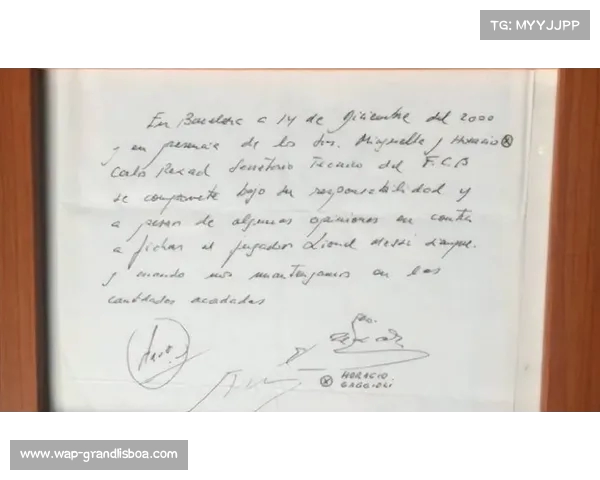 TG: MYYJJPP
En Barcelona a 14 de Diciembre del 2000
y en presencia de los Srs. Minguella y Horacio
Carlos Rexach Secretario Técnico del F.C.B
se compromete bajo su responsabilidad y
a pesar de algunas opiniones en contra
a fichar al jugador Lionel Messi siempre
y cuando nos mantengamos en las
cantidades acordadas
HORACIO
GAGGIOLI
www.wap-grandlisboa.com